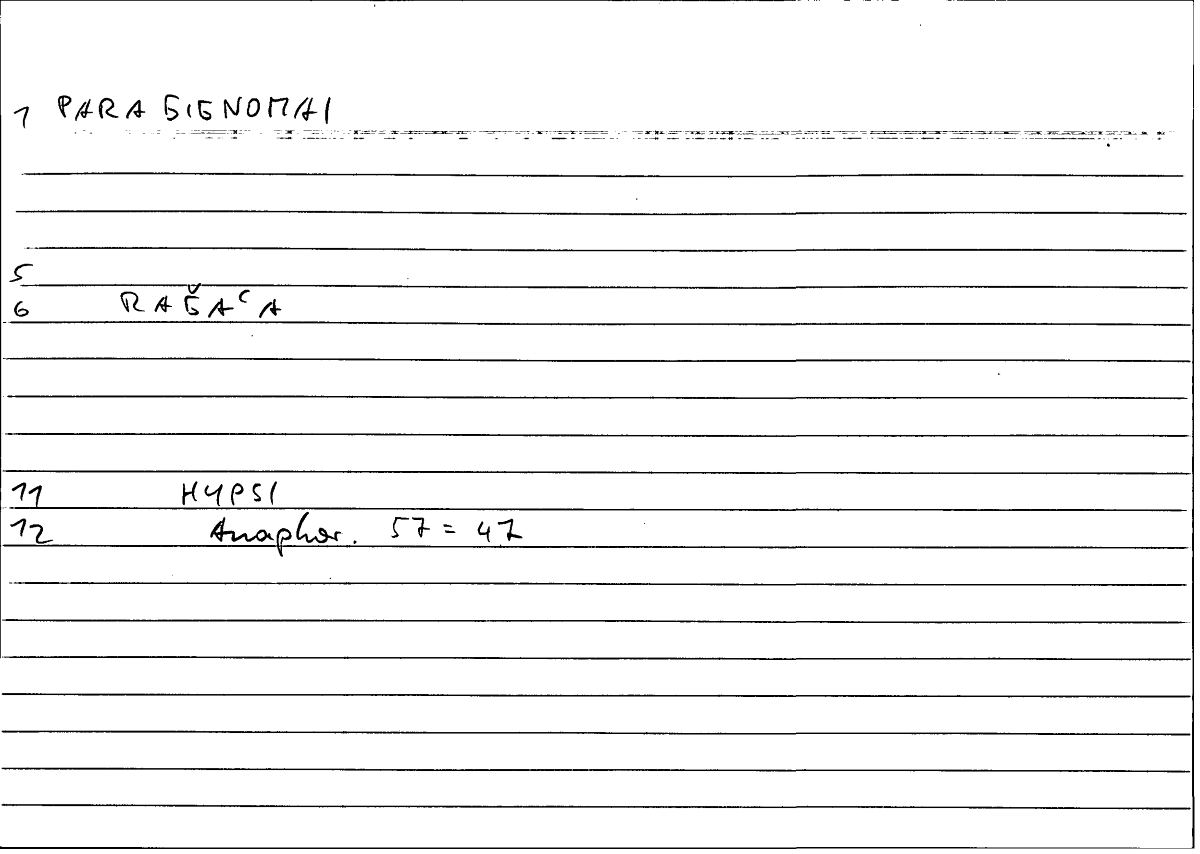 1 PARA GIGNOMAI
5
6 RAǦAʿA
11 HYPSI
12 Anaphor. 57 = 47